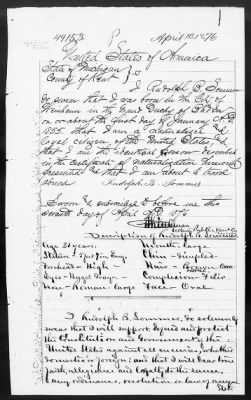 49153 April 10. 1876
United States of America
State of Michigan
County of Kent
I Rudolph B. Sommer
do swear that I was born in the City of
on or about the first day of January A.D.
1855. That I am a naturalized and
loyal citizen of the United States
that I am the identical person described
in the certificate of naturalization herewith
presented that I am about to travel
abroad. Rudolph B. Sommer
Sworn to & subscribed to before me this
seventh day of April A.D. 1876
Notary Public
Description of Rudolph B. Sommer
Age 21 years. Mouth - large
Chin - dimpled
Forehead - High - Hair -
Eyes - Hazel Gray - Complexion -
Nose - Roman - large Face - Oval
I Rudolph B. Sommer, do solemnly
swear that I will support, defend and protect
the Constitution and Government of the
United States against all enemies, whether
domestic or foreign; and that I will bear true
faith, allegiance and loyalty to the same,
any ordinance, resolution or law of any
State